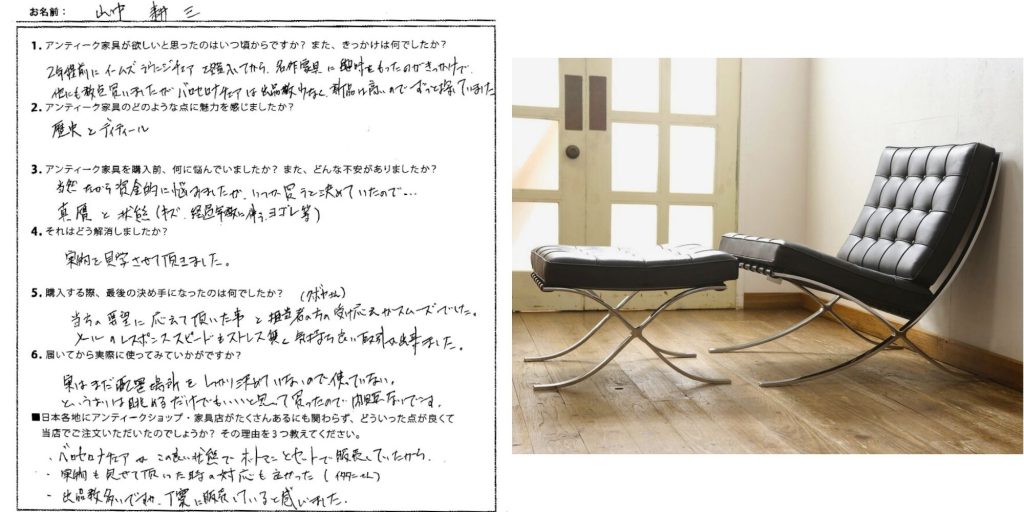 お名前： 山中 耕三
1. アンティーク家具が欲しいと思ったのはいつ頃からですか？また、きっかけは何でしたか？
2年程前に イームズ ラウンジチェア を購入してから、名作家具に興味をもったのがきっかけで、
他にも数点買いましたが バロセロナチェアは出品数少なく、新品は高いので ずっと探していました
2. アンティーク家具のどのような点に魅力を感じましたか？
歴史とディティール
3. アンティーク家具を購入前、何に悩んでいましたか？また、どんな不安がありましたか？
当然 ながら 資金的に悩みましたが、いつか買うと決めていたので…
真贋と状態（キズ、経過年数に伴う、ヨゴレ等）
4. それはどう解消しましたか？
実物を見学させて頂きました。
5. 購入する際、最後の決め手になったのは何でしたか？
当方の要望に応えて頂いた事と担当者の方の受け応えがスムーズでした。
メールのレスポンススピードもストレス無く気持ち良い取引が出来ました。
6. 届いてから実際に使ってみていかがですか？
実はまだ配置場所をしっかり決めていないので使っていない。
というよりは眺めるだけでもいいと思って買ったので問題なしです。
■日本各地にアンティークショップ・家具店がたくさんあるにも関わらず、どういった点が良くて
当店でご注文いただいたのでしょうか？その理由を3つ教えてください。
・バロセロナチェアが この良い状態で オットマンとセットで販売していたから。
・実物も見せて頂いた時の対応も良かった
・出品数多いですが、丁寧に販売していると感じました。